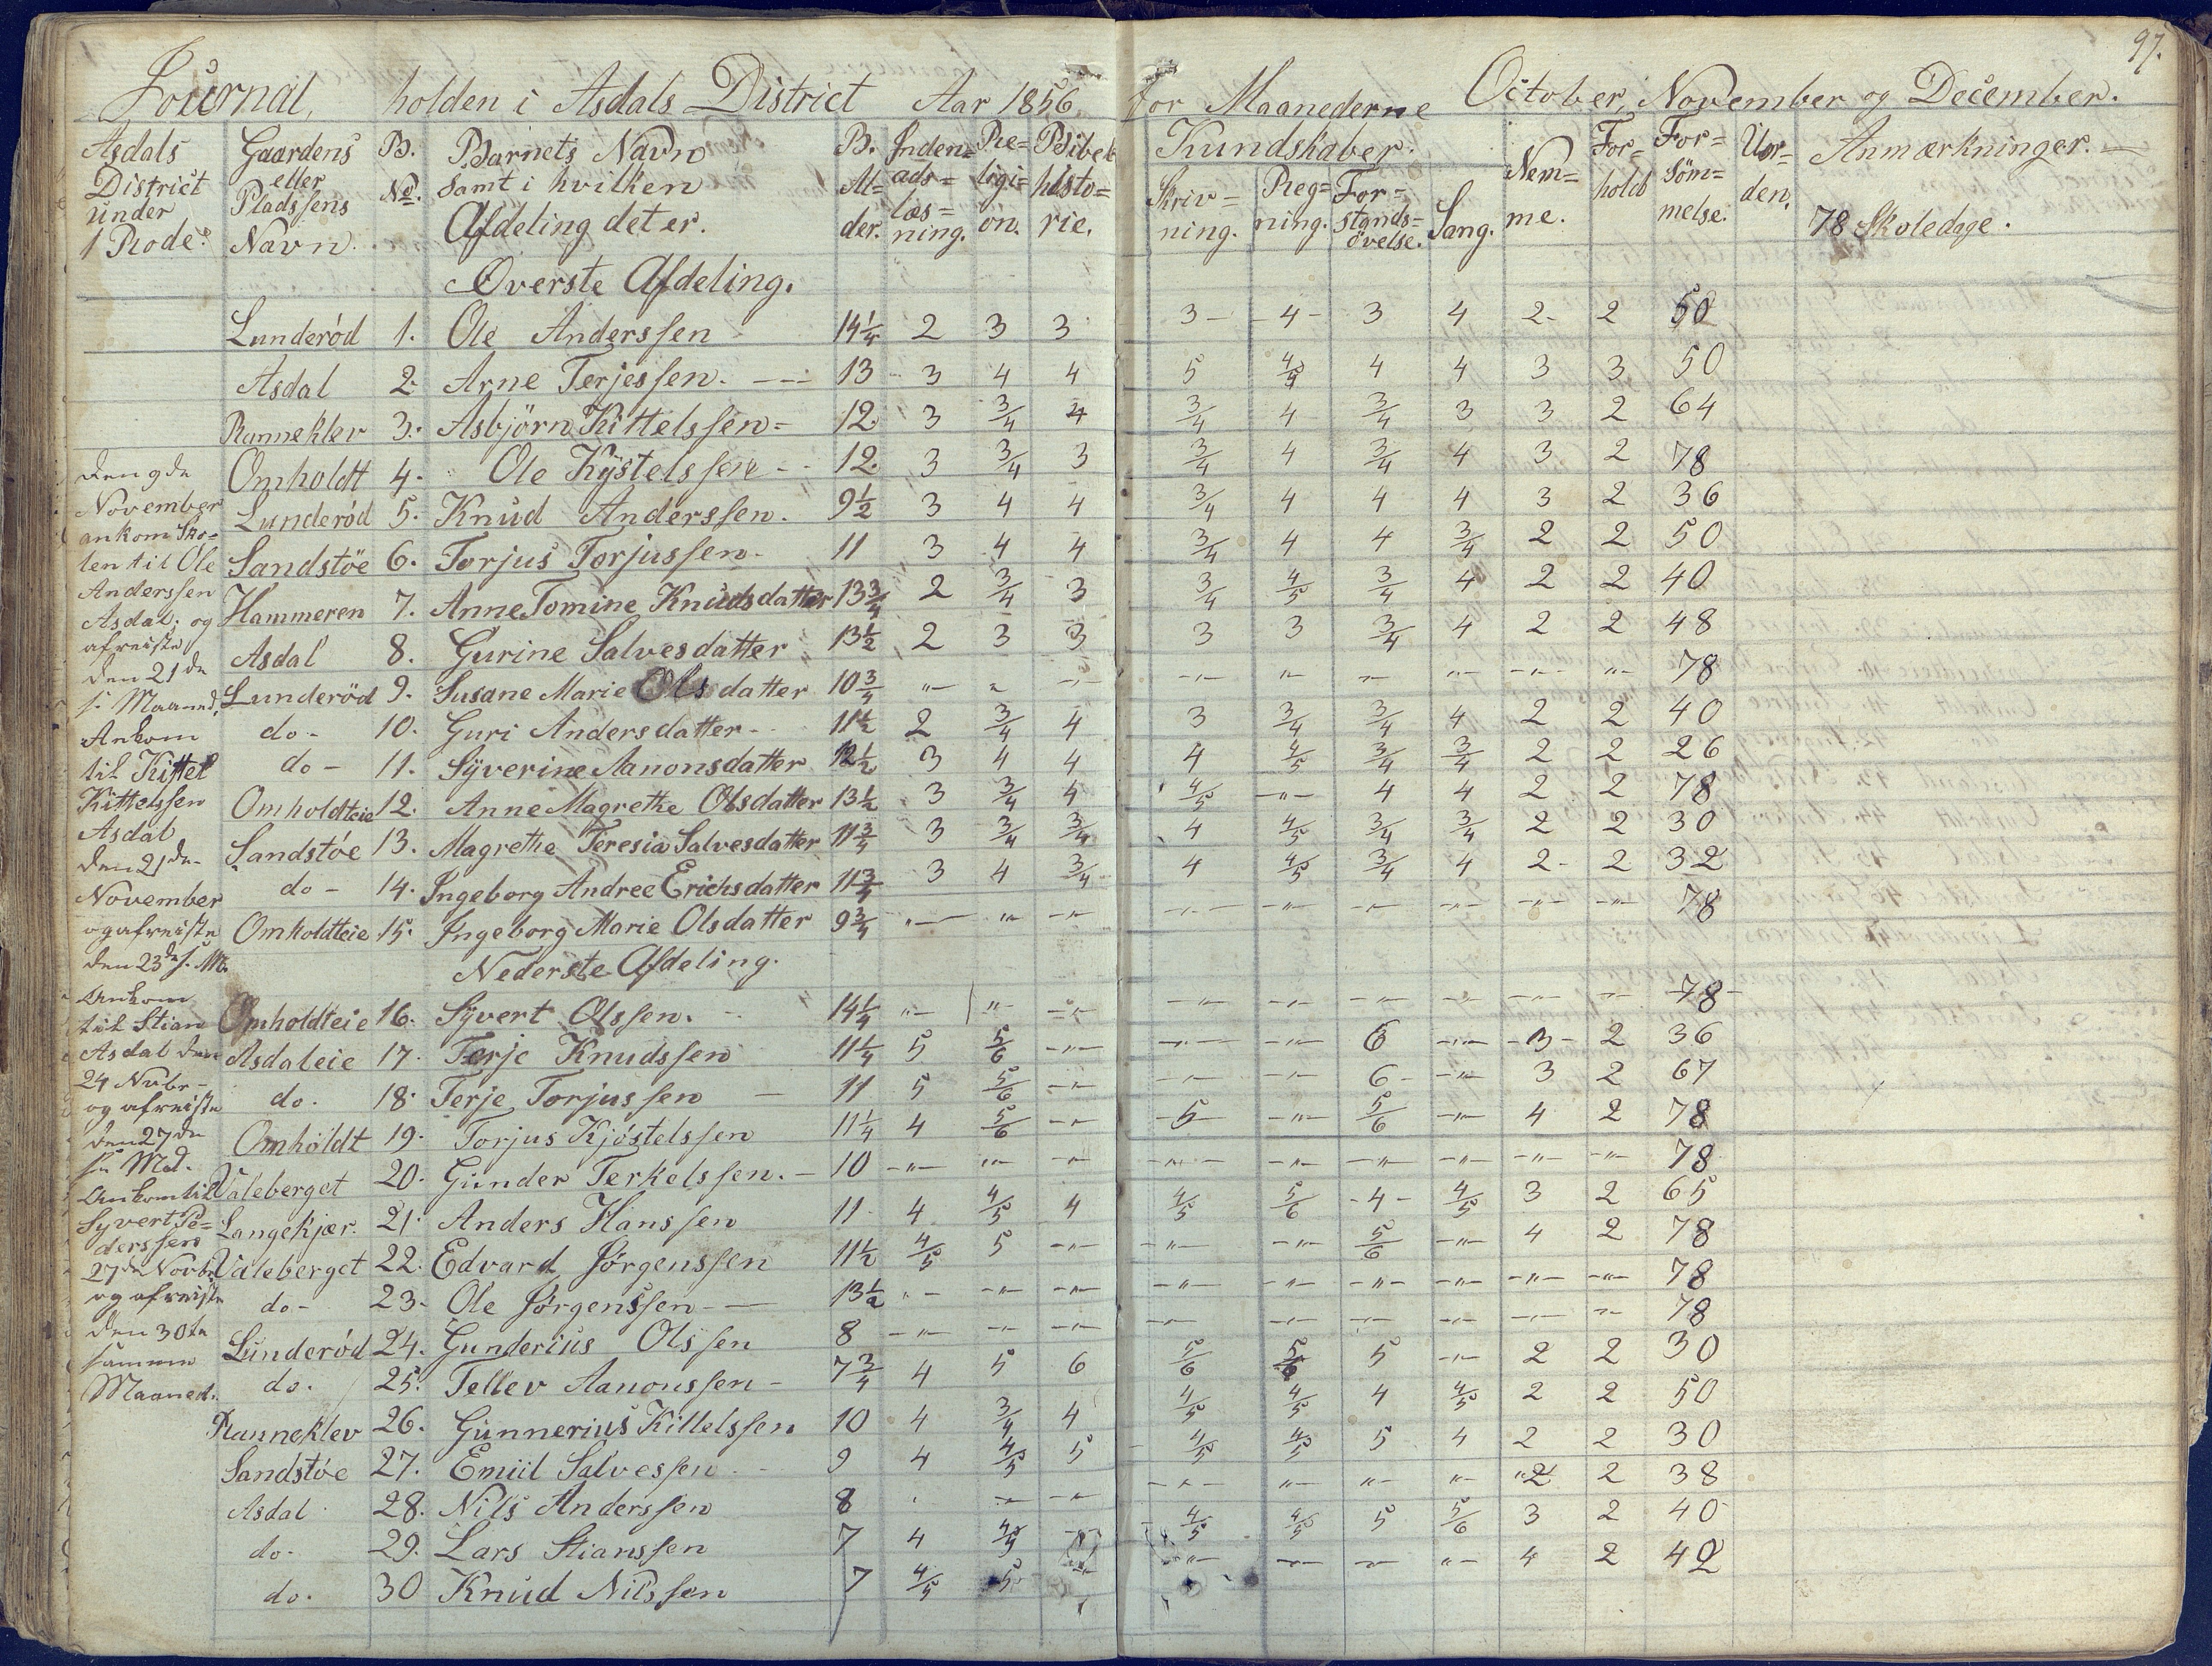 97.
Journal, holden i Asdals District Aar 1856 for Maanederne October, November og December.
Asdals District under 1 Rode. | Gaardens eller Pladssens Navn. | B. No. | Barnets Navn samt i hvilken Afdeling det er. | B. Al=der. | Inden=ads=læs=ning. | Re=ligi=ón. | Bibel histo=rie. | Kundskaber. Skriv=ning. | Reg=ning. | For=stands=övelse. | Sang. | Nem=me. | For=hold | For=söm=melse. | Uor=den. | Anmærkninger. 78 Skoledage.
Överste Afdeling.
Lunderöd 1. Ole Anderssen 14 1/4 2 3 3 3 - 4 - 3 4 2- 2 50
Asdal 2. Arne Terjessen. 13 3 4 4 5 4/5 4 4 3 3 50
Ranneklev 3. Asbjörn Kittelssen = 12. 3 3/4 4 3/4 4 3/4 3 3 2 64
Omholdt 4. Ole Kÿstelssen 12. 3 3/4 3 3/4 4 3/4 4 3 2 78
Lunderöd 5. Knud Anderssen. 9 1/2 3 4 4 3/4 4 4 4 3 2 36
Sandstöe 6. Torjus Torjussen. 11 3 4 4 3/4 4 4 3/4 2 2 50
Hammeren 7. Anne Tomine Knudsdatter 13 3/4 2 3/4 3 3/4 4/5 3/4 4 2 2 40
Asdal 8. Gurine Salvesdatter 13 1/2 2 3 3 3 3 3/4 4 2 2 48
Lunderöd 9. Susane Marie Olsdatter 10 3/4 " " " " " " " " " 78
do - 10. Guri Andersdatter 11 1/2 2 3/4 4 3 3/4 3/4 4 2 2 40
do - 11. Sÿverine Aanonsdatter 12 1/2 3 4 4 4 4/5 3/4 3/4 2 2 26
Omholdteie 12. Anne Magrethe Olsdatter 13 1/2 3 3/4 4 4/5 " 4 4 2 2 78
Sandstöe 13. Magrethe Teresia Salvesdatter 11 3/4 3 3/4 3/4 4 4/5 3/4 3/4 2 2 30
do - 14. Ingeborg Andree Erichsdatter 11 3/4 3 4 3/4 4 4/5 3/4 4 2- 2 32
Omholdteie 15. Ingeborg Marie Olsdatter 9 3/4 " " " " " " " " " 78
Nederste Afdeling.
Omholdteie 16. Sÿvert Olssen. 14 1/4 " " " " " " " " " 78
Asdaleie 17. Terje Knudssen 11 1/4 5 5/6 " " " 6 " 3 2 36
do. 18. Terje Torjussen 11 5 5/6 " " " 6 " 3 2 67
Omholdt 19. Torjus Kjöstelssen 11 1/4 4 5/6 " 5 " 5/6 " 4 2 78
Valeberget 20. Gunder Terkelssen. 10 " " " " " " " " " 78
Langekjær. 21. Anders Hanssen 11 4 4/5 4 4/5 5/6 4 4/5 3 2 65
Valeberget 22. Edvard Jörgenssen 11 1/2 4/5 5 " " " 5/6 " 4 2 78
do - 23. Ole Jörgenssen 13 1/2 " " " " " " " " " 78
Lunderöd 24. Gunderius Olssen 8 " " " " " " " " " 78
do. 25. Tellev Aanonssen 7 3/4 4 5 6 5/6 5/6 5 " 2 2 30
Ranneklev 26. Gunnerius Kittelssen 10 4 3/4 4 4/5 4/5 4 4/5 2 2 50
Sandstöe 27. Emiil Salvessen 9 4 4/5 5 4/5 4/5 5 4 2 2 30
Asdal 28. Nils Anderssen 8 " " " " " " " 2 2 38
do. 29. Lars Stianssen 7 4 4/5 4/5 4/5 5 5/6 3 2 40
do. 30 Knud Nilssen 7 4/5 5 " " " " " 4 2 42
den 9de
November
ankom Sko=
len til Ole
Anderssen
Asdal; og
afreiste
den 21de
s. Maaned.
Ankom
til Kittel
Kittelssen
Asdal
den 21de
November
og afreiste
den 23de s. Md.
Ankom
til Stian
Asdal den
24 Nvbr
og afreiste
den 27de
s. Md.
Ankom til
Syvert Pe=
derssen
27de Novbr
og afreiste
den 30te
samme
Maaned.